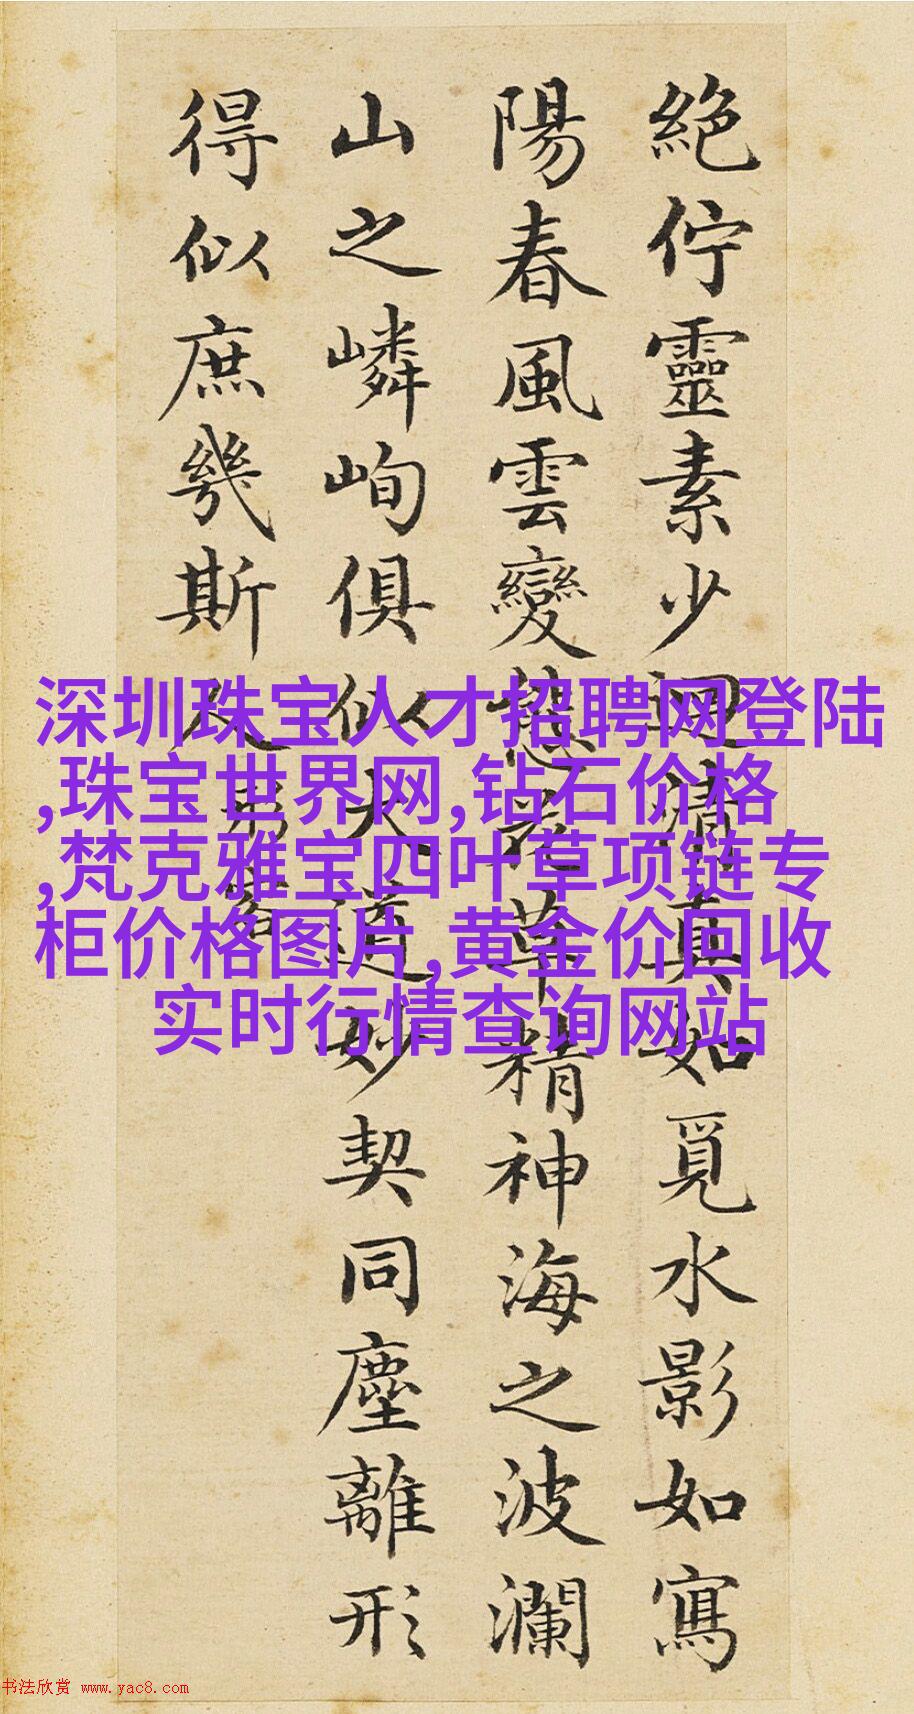 絶佇靈素少迴清真如覓水影如寫
陽春風雲變態花草精神海之波瀾
山之嶙峋俱似大道妙契同塵離形
得似庶幾斯人
深圳珠宝人才招聘网登陆
,珠宝世界网,钻石价格
,梵克雅宝四叶草项链专
柜价格图片,黄金价回收
实时行情查询网站
书法欣赏 www.yac8.com